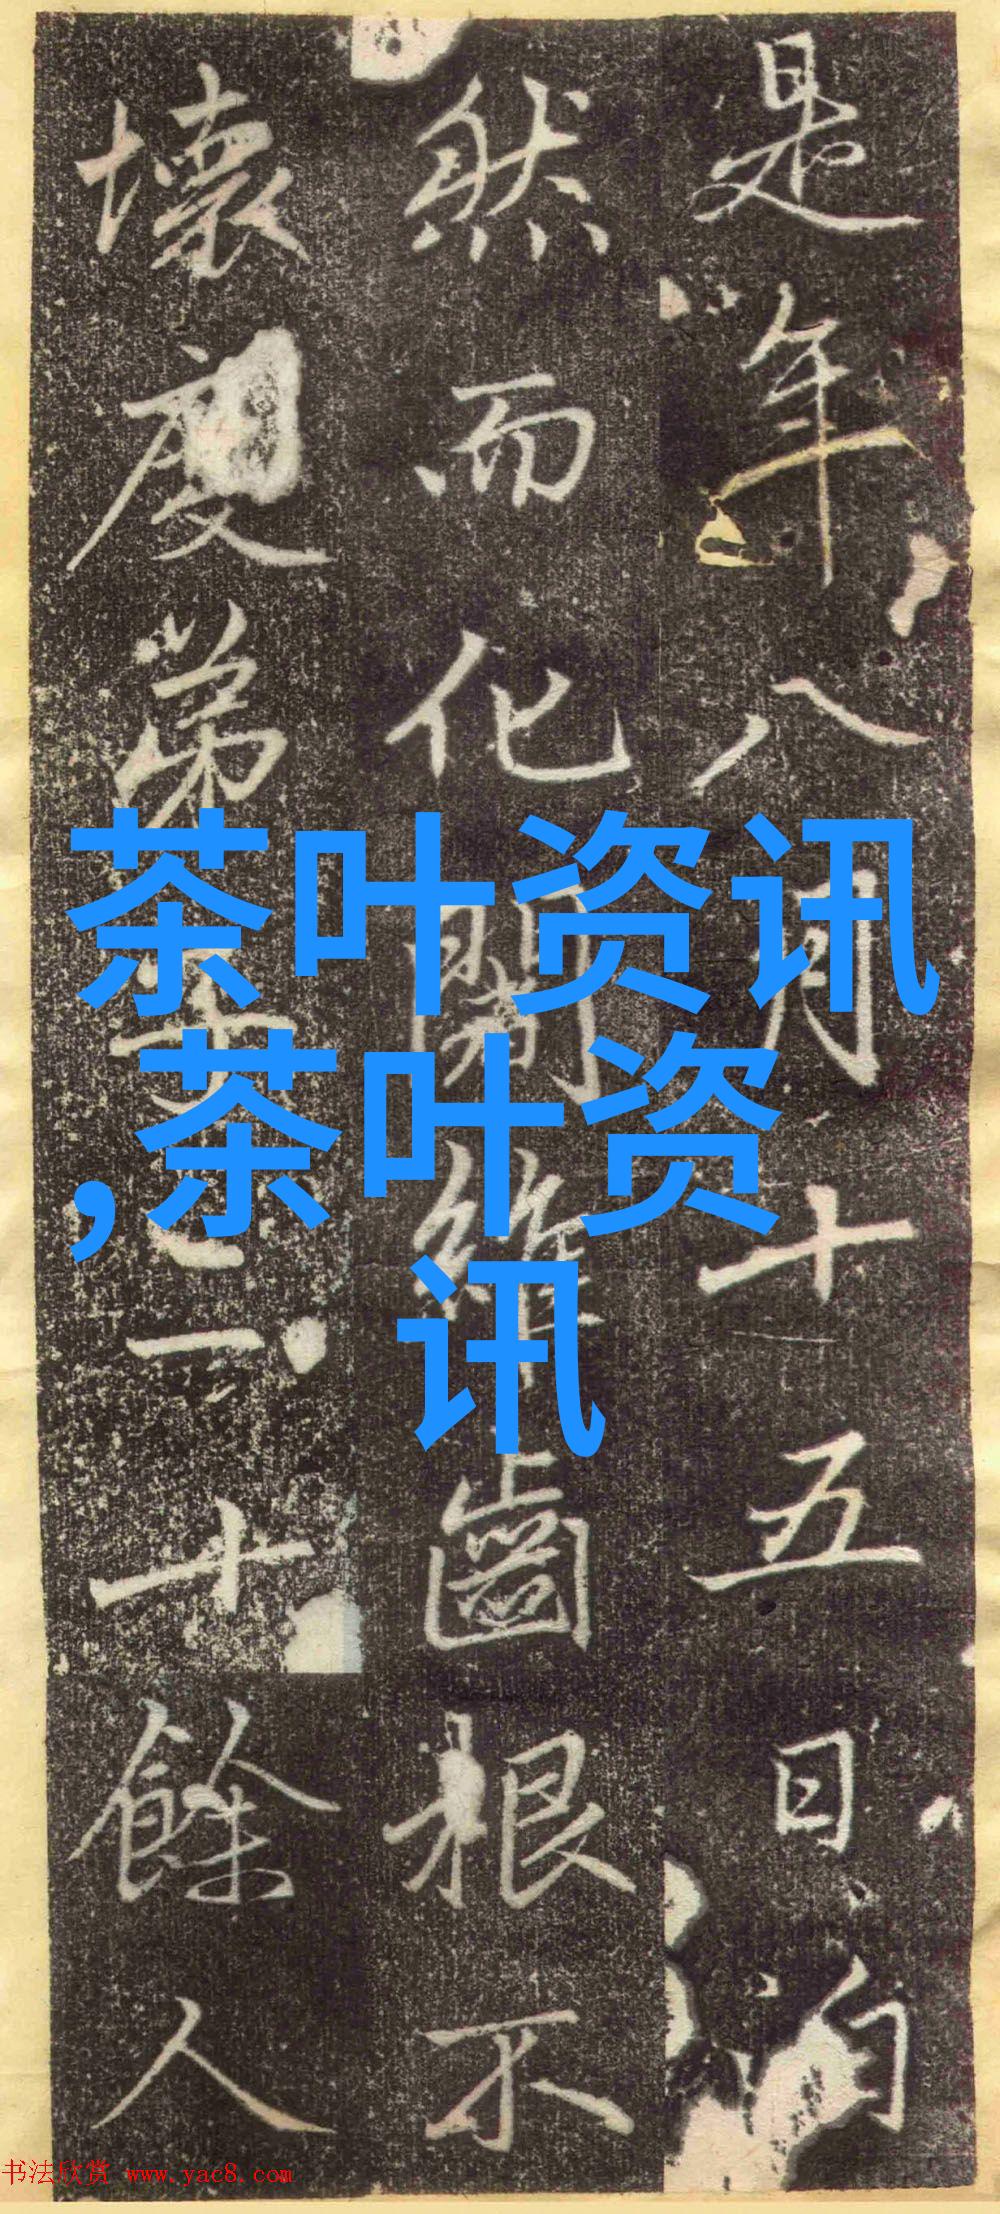 是年八月十五日泊
然而化闍維齒根不
壞度弟子十餘人
茶叶资讯
,茶叶资
讯
书法欣赏 www.yac8.com